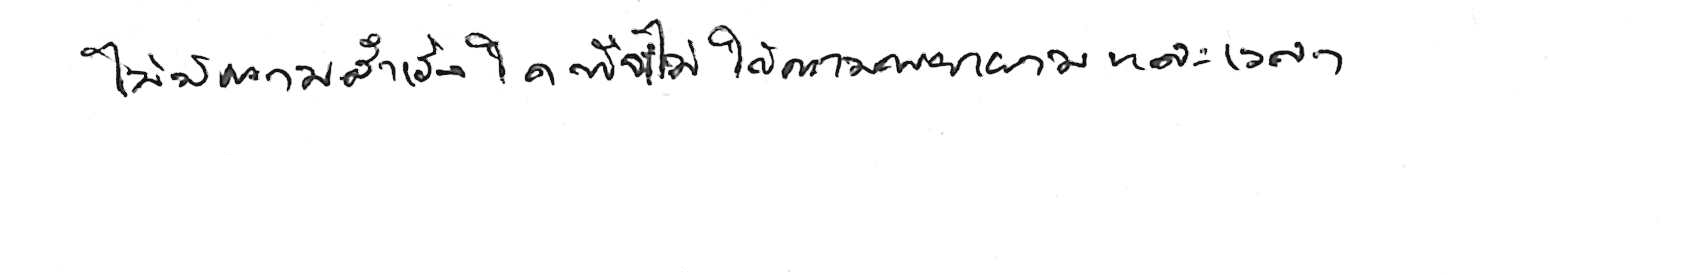 ไม่มีความสำเร็จใดที่ไม่ใช้ความพยายามและเวลา